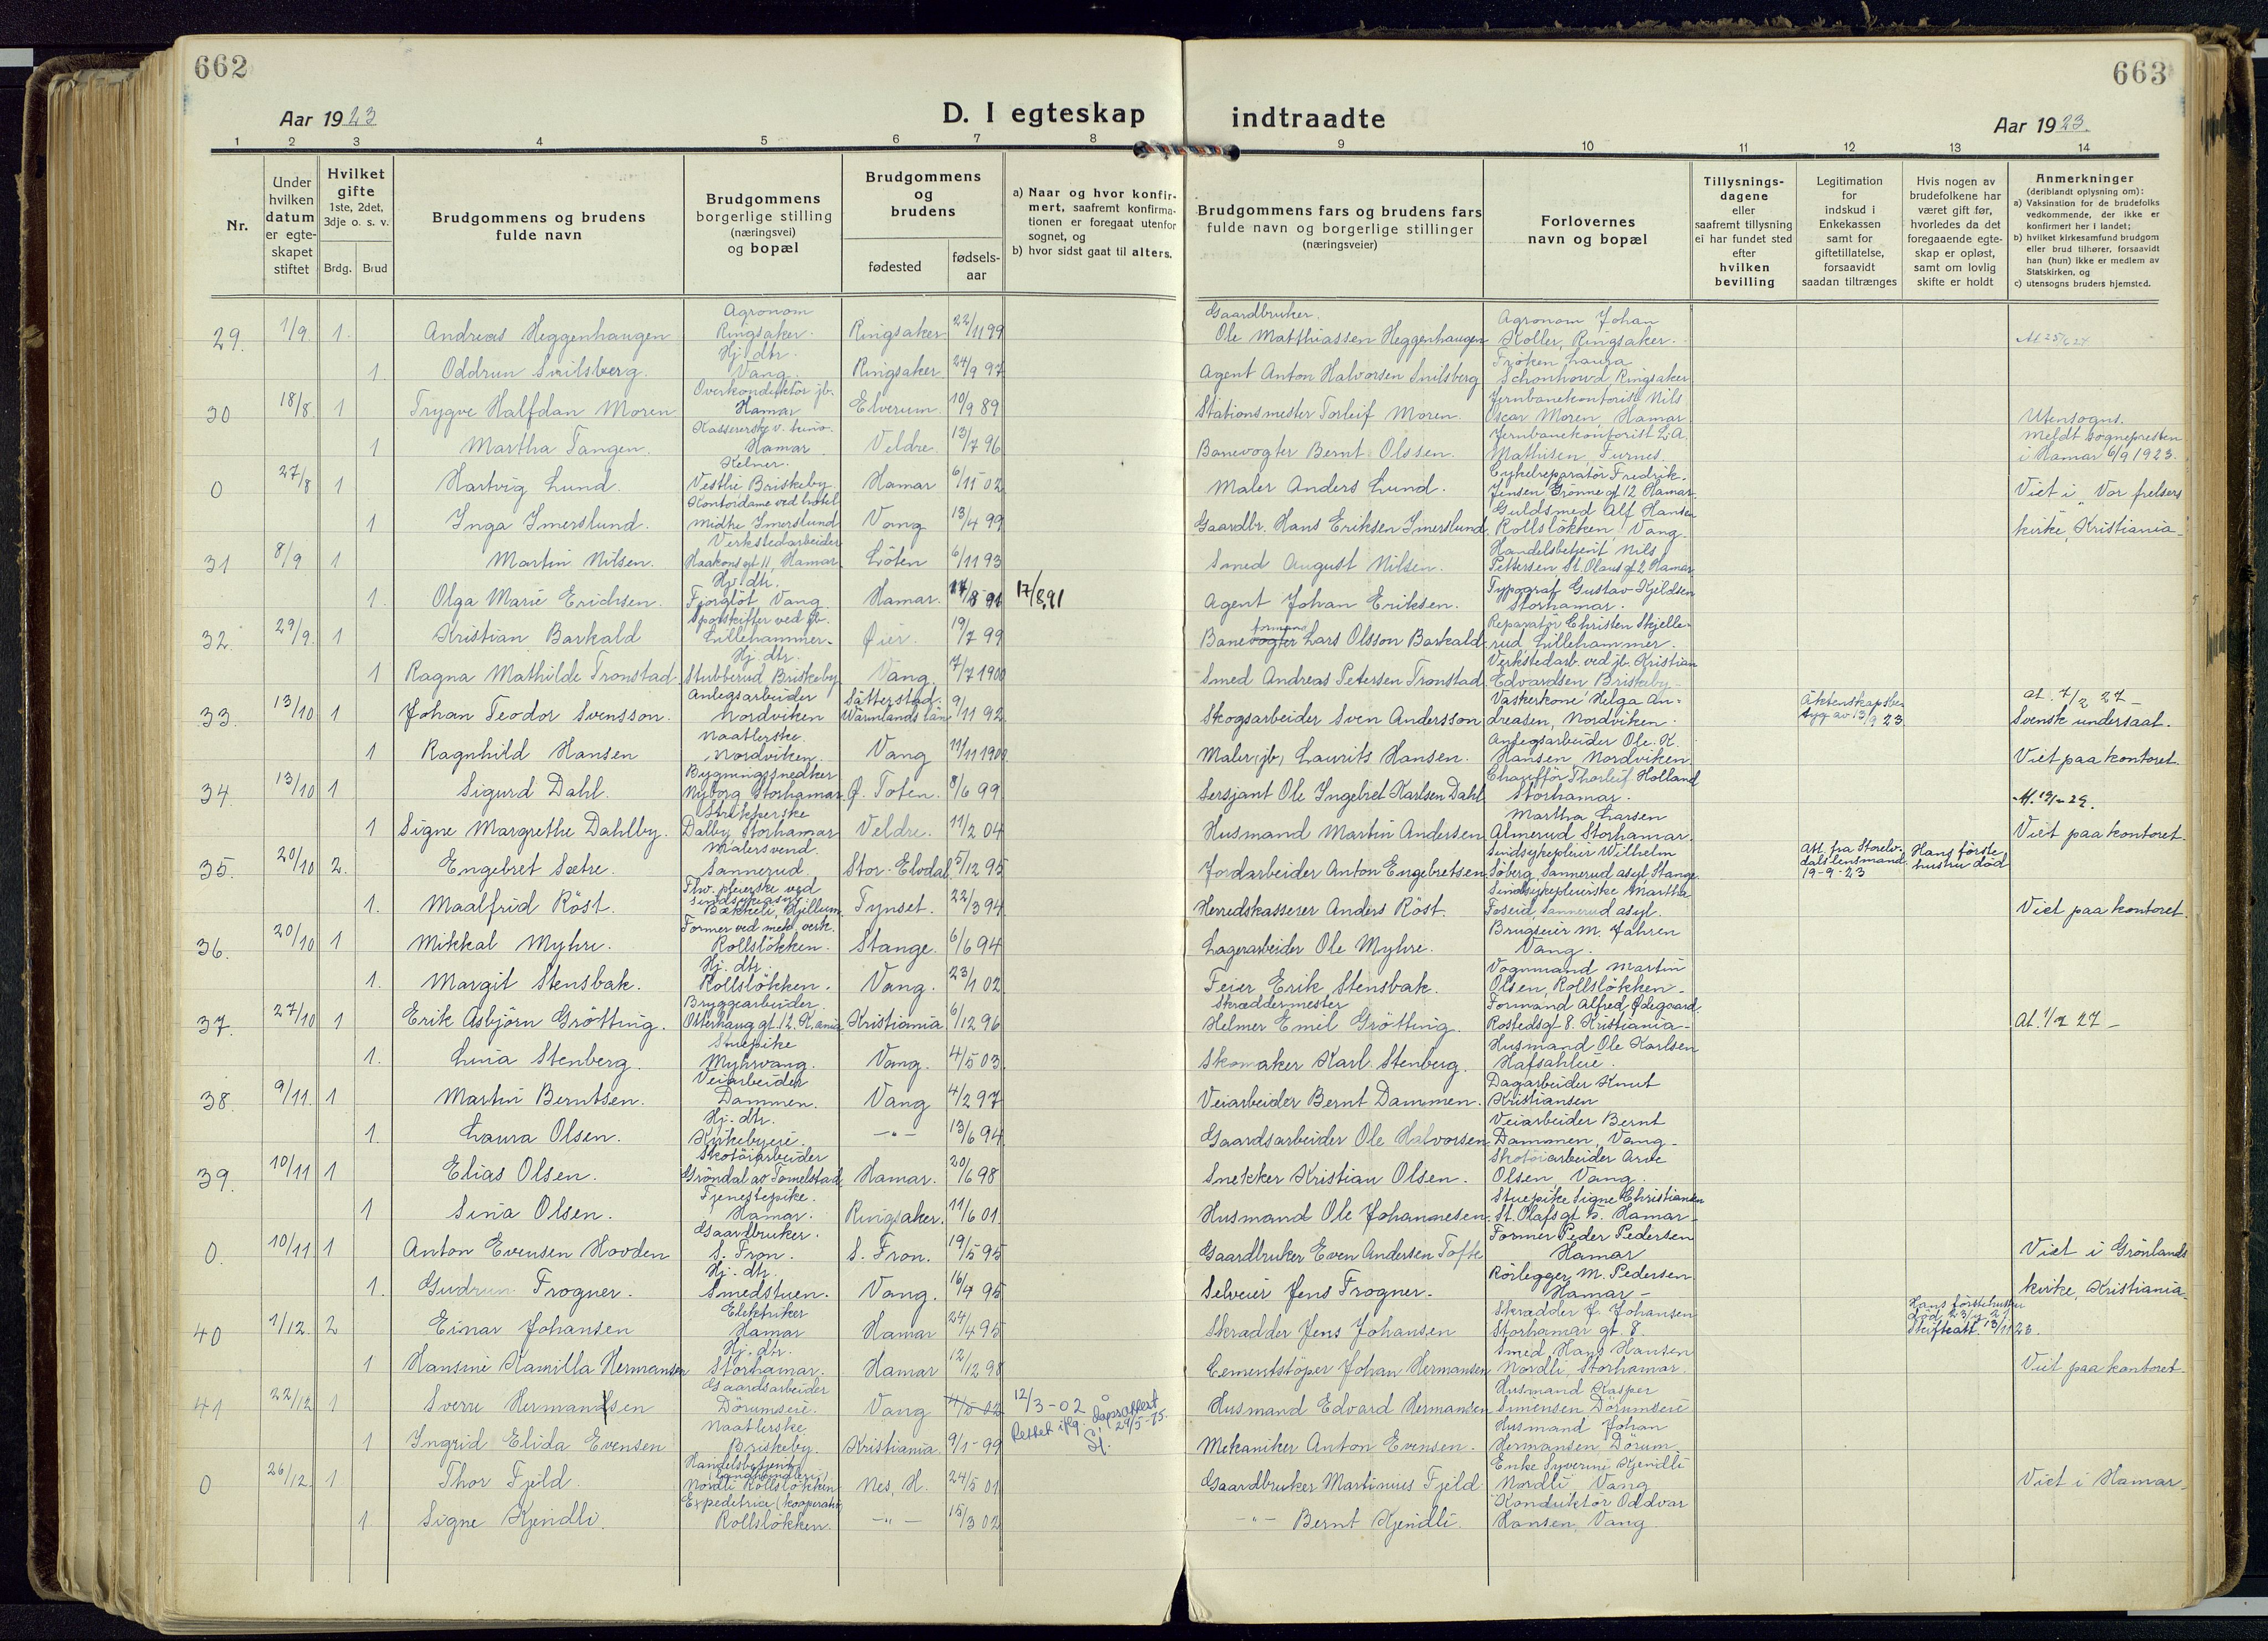 662
663
Aar 1923
D. I egteskap indtraadte
Aar 1923.
1 2 3 4 5 6 7 8 9 10 11 12 13 14
Nr.
Under hvilken datum er egteskapet stiftet
Hvilket gifte 1ste, 2det, 3dje o. s. v.
Brdg. Brud
Brudgommens og brudens fulde navn
Brudgommens borgerlige stilling (næringsvei) og bopæl
Brudgommens og brudens
fødested
fødsels-aar
a) Naar og hvor konfirmert, saafremt konfirmationen er foregaat utenfor sognet, og
b) hvor sidst gaat til alters.
Brudgommens fars og brudens fars fulde navn og borgerlige stillinger (næringsveier)
Forlovernes navn og bopæl
Tillysningsdagene eller saafremt tillysning ei har fundet sted efter hvilken bevilling
Legitimation for indskud i Enkekassen samt for giftetillatelse, forsaavidt saadan tiltrænges
Hvis nogen av brudefolkene har været gift før, hvorledes da det foregaaende egteskap er opløst, samt om lovlig skifte er holdt
Anmerkninger (deriblandt oplysning om):
a) Vaksination for de brudefolks vedkommende, der ikke er konfirmert her i landet;
b) hvilket kirkesamfund brudgom eller brud tilhører, forsaavidt han (hun) ikke er medlem av Statskirken, og
c) utensogns bruders hjemsted.
29. 1/9. 1. Andreas Heggenhaugen Agronom Ringsaker. Ringsaker 22/11 99 Gaardbruker. Ole Matthiassen Heggenhaugen Agronom Johan Koller, Ringsaker.
1. Oddrun Snilsberg. Hj. dtr. Vang. Ringsaker 24/9 97 Agent Anton Halvorsen Snilsberg Frøken Laura Schonhowd, Ringsaker
30 18/8. 1 Trygve Halfdan Moren Overkonduktør jb. Hamar Elverum. 10/9 89 Stationsmester Torleif Moren. Jernbanekontorist Nils Oscar Moren, Hamar Utensogns.
1 Martha Tangen. Kassererske v. kino. Hamar Veldre. 13/7 96 Banevogter Bernt Olssen. Jernbanekontorist L.A. Mathisen, Furnes. meldt sognepresten i Hamar 6/9 1923.
0 27/8 1 Hartvig Lund. Kelner. Vestli Briskeby. Hamar 6/11 02 Maler Anders Lund. Cykelreparatør Fredrik Jensen, Grønne gt 12 Hamar. Viet i "Vor frelsers
1 Inga Imerslund. Kontordame ved hotel midtre Imerslund Vang 13/4 99 Gaardbr. Hans Eriksen Imerslund. Guldsmed Alf Hansen Rollsløkken, Vang. kirke, Kristiania
31 8/9 1 Martin Nilsen. Verkstedarbeider Haakons gt 11, Hamar. Løten 6/11 93 Smed August Nilsen. Handelsbetjent Nils Pettersen St. Olavs gt 2 Hamar
1. Olga Marie Erichsen. Hj. dtr. Fjorgløt Vang Hamar. 17/8 91 17/8,91 Agent Johan Eriksen. Typograf Gustav Kjeldsen Storhamar.
32. 29/9. 1 Kristian Barkald Sporskifter ved jb. Lillehammer. Øier. 19/7 99 Banevogter formand Lars Olsson Barkald Reparatør Christen Skjellerud Lillehammer.
1 Ragna Mathilde Tronstad Hj. dtr. Stubberud Briskeby Vang. 7/7 1900 Smed Andreas Petersen Tronstad Verkstedarb. ved jb. Kristian Edvardsen Briskeby
33. 13/10 1 Johan Teodor Svensson. Anlegsarbeider Nordviken Sätterstad. Wärmlands län 9/11 92 Skogsarbeider Sven Andersson Vaskerkone Helga Andreasen, Nordviken. Äktenskapsbetyg av 13/9 23 at. 7/2 27 Svensk undersaat.
1 Ragnhild Hansen Naatlerske. Nordviken. Vang 11/11 1900 Maler (jb) Laurits Hansen. Anlegsarbeider Ole K. Hansen Nordviken Viet paa kontoret.
34. 13/10 1 Sigurd Dahl. Bygningssnedker Nyborg Storhamar Ø. Toten. 8/6 99 Sersjant Ole Ingebret Karlsen Dahl Chauffør Thorleif Holland Storhamar.
1 Signe Margrethe Dahlby. Strikkerske Dalby Storhamar Veldre. 11/2 04 Husmand Martin Andersen Martha Larsen Almerud Storhamar. Viet paa kontoret.
35. 20/10 2. Engebret Sætre. Malersvend. Sannerud. Stor-Elvdal. 5/12 95 Jordarbeider Anton Engebretsen. Sindsykepleier Wilhelm Søberg, Sannerud asyl, Stange Att. fra Storelvdals lensmand. 19-9-23 Hans første hustru død
1. Maalfrid Røst. pleierske ved sindsykeasyl. Bækkeli, Hjellum Tynset. 22/3 94 Herredskasserer Anders Røst. Sindsykepleierske Martha Foseid, Sannerud asyl. Viet paa kontoret.
36. 20/10 1 Mikkal Myhre. Former ved mek. verk. Rollsløkken. Stange. 6/6 94 Lagerarbeider Ole Myhre. Brugseier M. Jahren Vang.
1. Margit Stensbak. Hj. dtr. Rollsløkken. Vang. 23/1 02 Feier Erik Stensbak. Vognmand Martin Olsen, Rollsløkken.
37. 27/10 1 Erik Asbjørn Grøtting. Bryggearbeider Otterhaug gt. 12. K.ania Kristiania 6/12 96 Skræddermester Helmer Emil Grøtting. Formand Alfred Ødegaard. Rostedsgt. 8. Kristiania At. 1/2 27
1. Lina Stenberg. Stuepike Myhrvang. Vang. 4/5 03 Skomaker Karl Stenberg. Husmand Ole Karlsen Hafsahleie.
38. 9/11. 1 Martin Berntsen. Veiarbeider Dammen. Vang 4/2 97 Veiarbeider Bernt Dammen. Dagarbeider Knut Kristiansen
1. Laura Olsen. Hj. dtr. Kirkebyeie. -"- 13/6 94 Gaardsarbeider Ole Halvorsen Veiarbeider Bernt Dammen, Vang.
39. 10/11 1 Elias Olsen. Skotøiarbeider Grøndal av Tomelstad Hamar. 20/6 98 Snekker Kristian Olsen. Skotøiarbeider Arve Olsen, Vang.
1 Sina Olsen. Tjenestepike. Hamar. Ringsaker. 11/6 01 Husmand Ole Johannesen. Stuepike Signe Christiansen St. Olafs gt 5. Hamar
0. 10/11 1 Anton Evensen Hovden Gaardbruker. S. Fron. S. Fron. 19/5 95 Gaardbruker Even Andersen Tofte Former Peder Pedersen Hamar Viet i Grønlands
1. Gudrun Frogner. Hj. dtr. Smedstuen. Vang. 16/4 95 Selveier Jens Frogner. Rørlegger M. Pedersen Hamar kirke, Kristiania
40 1/12. 2 Einar Johansen Elektriker Hamar Hamar 24/4 95 Skradder Jens Johansen Skradder J. Johansen Storhamar gt. 8. Hans første hustru død Skifteatt. 13/11 23.
1 Hansine Kamilla Hermansen Hj. dtr. Storhamar. Hamar 12/12 98 Cementstøper Johan Hermansen Smed Hans Hansen Nordli, Storhamar. Viet paa kontoret
41 22/12 1 Sverre Hermansen Gaardsarbeider Dørumseie. Vang 4/5 02 12/3-02 Rettet iflg. dåpsattest 29/5-75. Sj. Husmand Edvard Hermansen Husmand Kasper Simensen Dørumseie
1 Ingrid Elida Evensen Naatlerske Briskeby. Kristiania 9/1-99 Mekaniker Anton Evensen. Husmand Johan Hermansen Dørum
0 26/12. 1 Thor Fjeld. Handelsbetjent (landhandleri) Nordli Rollsløkken Nes, H. 24/5 01 Gaardbruker Martinius Fjeld Enke Syverine Kjendli Nordli Vang Viet i Hamar
1 Signe Kjendli. Expeditrice (kooperativ) Rollsløkken. -"- 15/3 02 -"- Bernt Kjendli. Konduktør Oddvar Hansen, Vang